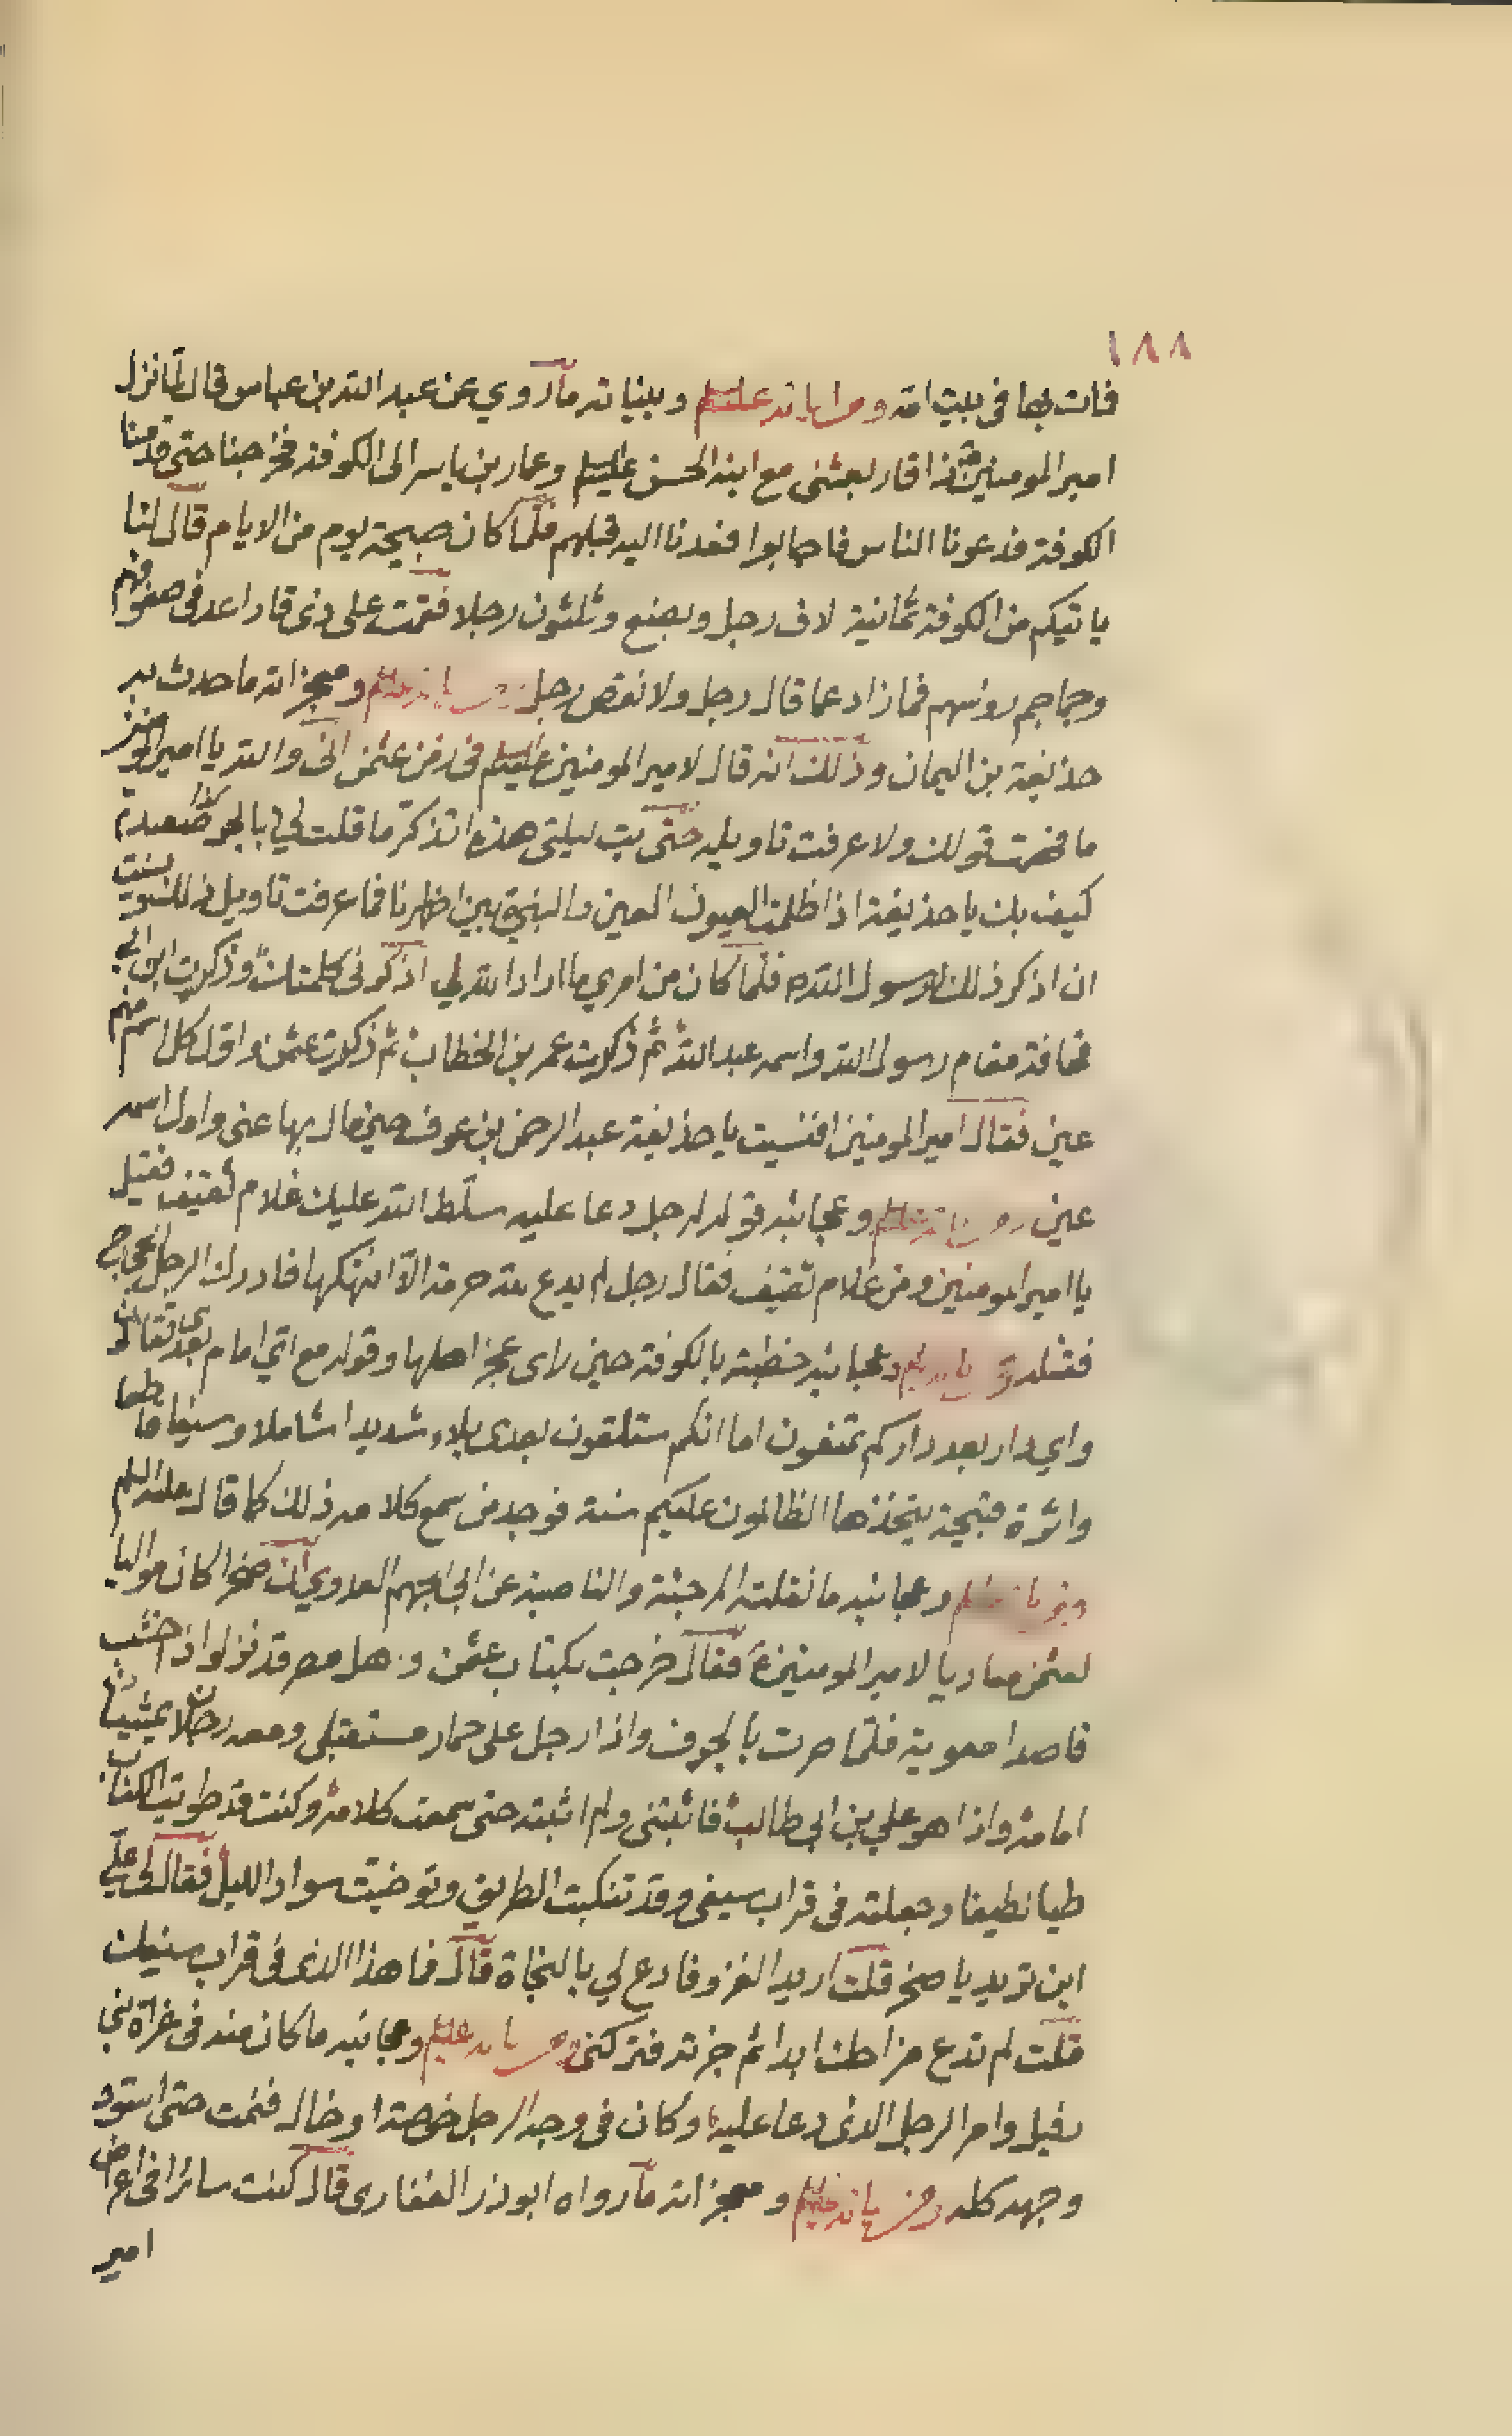 ١٨٨
فات بها في بيت امه ومن اياته عليه السلم وبيناته ما روي عن عبد الله بن عباس قال لما نزل
امير المومنين ذا قار بعثنى مع ابنه الحسن عليه السلم وعمار بن ياسر الى الكوفة فخرجنا حتى قدمنا
الكوفة فدعونا الناس فاجابوا فعدنا اليه قبلهم فلما كان صبيحة يوم من الايام قال لنا
ياتيكم من الكوفة ثمانية الاف رجل وبضع وثلثون رجلا فقمت على ذى قار اعد في صفوفهم
وجماجم روسهم فما زاد عما قال رجل ولا نقص رجل عليه السلم ومعجزاته ما حدث به
حذيفة بن اليمان وذلك انه قال لامير المومنين عليه السلم في زمن عثمن انى والله يا امير المومنين
ما فهمت قولك ولا عرفت تاويله حتى بت ليلتى هذه اتذكر ما قلت لي بالحرة
كيف بك يا حذيفة اذا ظلمت العيون العين والنبي بين اظهرنا فما عرفت تاويل ذلك ونسيت
ان اذكر ذلك لرسول الله ص فلما كان من امري ما اراد الله لي اذكرنى كلمتك وذكرت ابن ابي
قحافة مقام رسول الله واسمه عبد الله ثم ذكرت عمر بن الخطاب ثم ذكرت عثمن واول كل اسم منهم
عين فقال امير المومنين افنسيت يا حذيفة عبد الرحمن بن عوف حين مال بها عنى واول اسمه
عين عليه السلم وعجائبه قوله لرجل دعا عليه سلط الله عليك غلام ثقيف فقيل
يا امير المومنين ومن غلام ثقيف فقال رجل لم يدع لله حرمة الا انتهكها فادرك الرجل الحجاج
فقتله وعجائبه خطبته بالكوفة حين راى عجز اهلها وقوله مع اي امام بعدى تقاتلون
واي دار بعد داركم تمنعون اما انكم ستلقون بعدى بلاء شديدا شاملا وسيفا قاطعا
واثرة قبيحة يتخذها الظالمون عليكم سنة فوجد من سمع كلامه ذلك كما قال عليه السلم
وعجائبه ما نقلته المرجئة والناصبة عن ابي الجهم العدوي ان صخرا كان مواليا
لعثمن معاديا لامير المومنين ع فقال خرجت بكتاب عثمن واهل مصر قد نزلوا ذا خشب
قاصدا معوية فلما صرت بالجوف واذا رجل على حمار مستقبلى ومعه رجلان يمشيان
امامه واذا هو علي بن ابي طالب فاثبتنى ولم اثبته حتى سمعت كلامه وكنت قد طويت الكتاب
طيا لطيفا وجعلته في قراب سيفى وقد تنكبت الطريق وتوخيت سواد الليل فقال لى علي
اين تريد يا صخر قلت اريد الغزو فادع لي بالنجاة قال فما هذا الذى في قراب سيفك
قلت لم تدع مزاحك ابدا ثم جزته فتركنى عليه السلم وعجائبه ما كان منه في غزاة بني
وامر الرجل الذى دعا عليه وكان في وجه الرجل او خال فنمت حتى اسود
وجهه كله ومن اياته عليه السلم ومعجزاته ما رواه ابو ذر الغفارى قال كنت سائرا في اعراض
امير